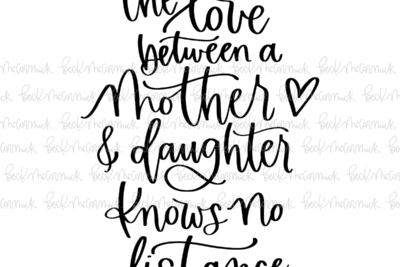 the love
between a
Mother
& daughter
knows no
distance